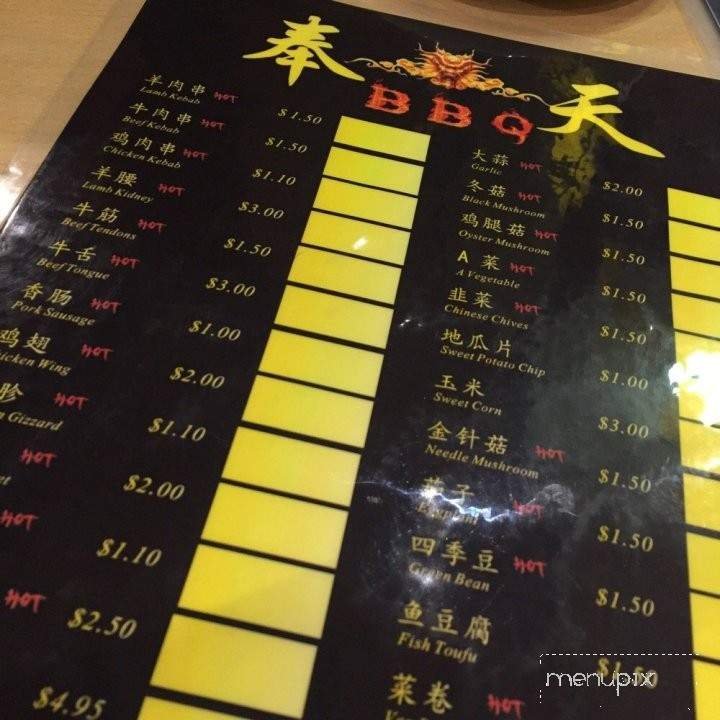 奉天
BBQ
羊肉串 HOT $1.50
Lamb Kebab
牛肉串 HOT $1.50
Beef Kebab
鸡肉串 HOT $1.10
Chicken Kebab
羊腰 HOT $3.00
Lamb Kidney
牛筋 HOT $1.50
Beef Tendons
牛舌 HOT $3.00
Beef Tongue
香肠 HOT $1.00
Pork Sausage
鸡翅 HOT $2.00
Chicken Wing
胗 HOT $1.10
Gizzard
HOT $2.00
HOT $1.10
HOT $2.50
$4.95
大蒜 HOT $2.00
Garlic
冬菇 HOT $1.50
Black Mushroom
鸡腿菇 HOT $1.50
Oyster Mushroom
A菜 HOT $1.50
A Vegetable
韭菜 HOT $1.50
Chinese Chives
地瓜片 $1.00
Sweet Potato Chip
玉米 $3.00
Sweet Corn
金针菇 HOT $1.50
Needle Mushroom
茄子 HOT $1.50
Eggplant
四季豆 HOT $1.50
Green Bean
鱼豆腐 $1.50
Fish Toufu
菜卷 HOT
menupix